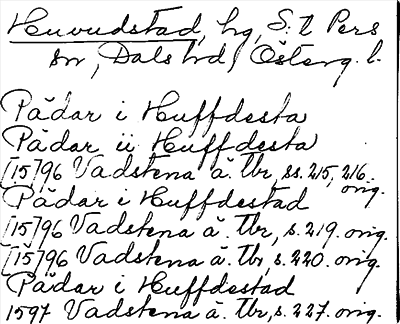 Huvudstad, hg, S:t Pers
sn, Dals hd, Österg. l.
Pädar i Huffdesta
Pädar ii Huffdesta
[15]96 Vadstena ä. tbr, ss. 215, 216.
orig.
Pädar i Huffdestad
[15]96 Vadstena ä. tbr, s. 219. orig.
[15]96 Vadstena ä. tbr, s. 220. orig.
Pädar i Huffdestad
1597 Vadstena ä. tbr, s. 227. orig.